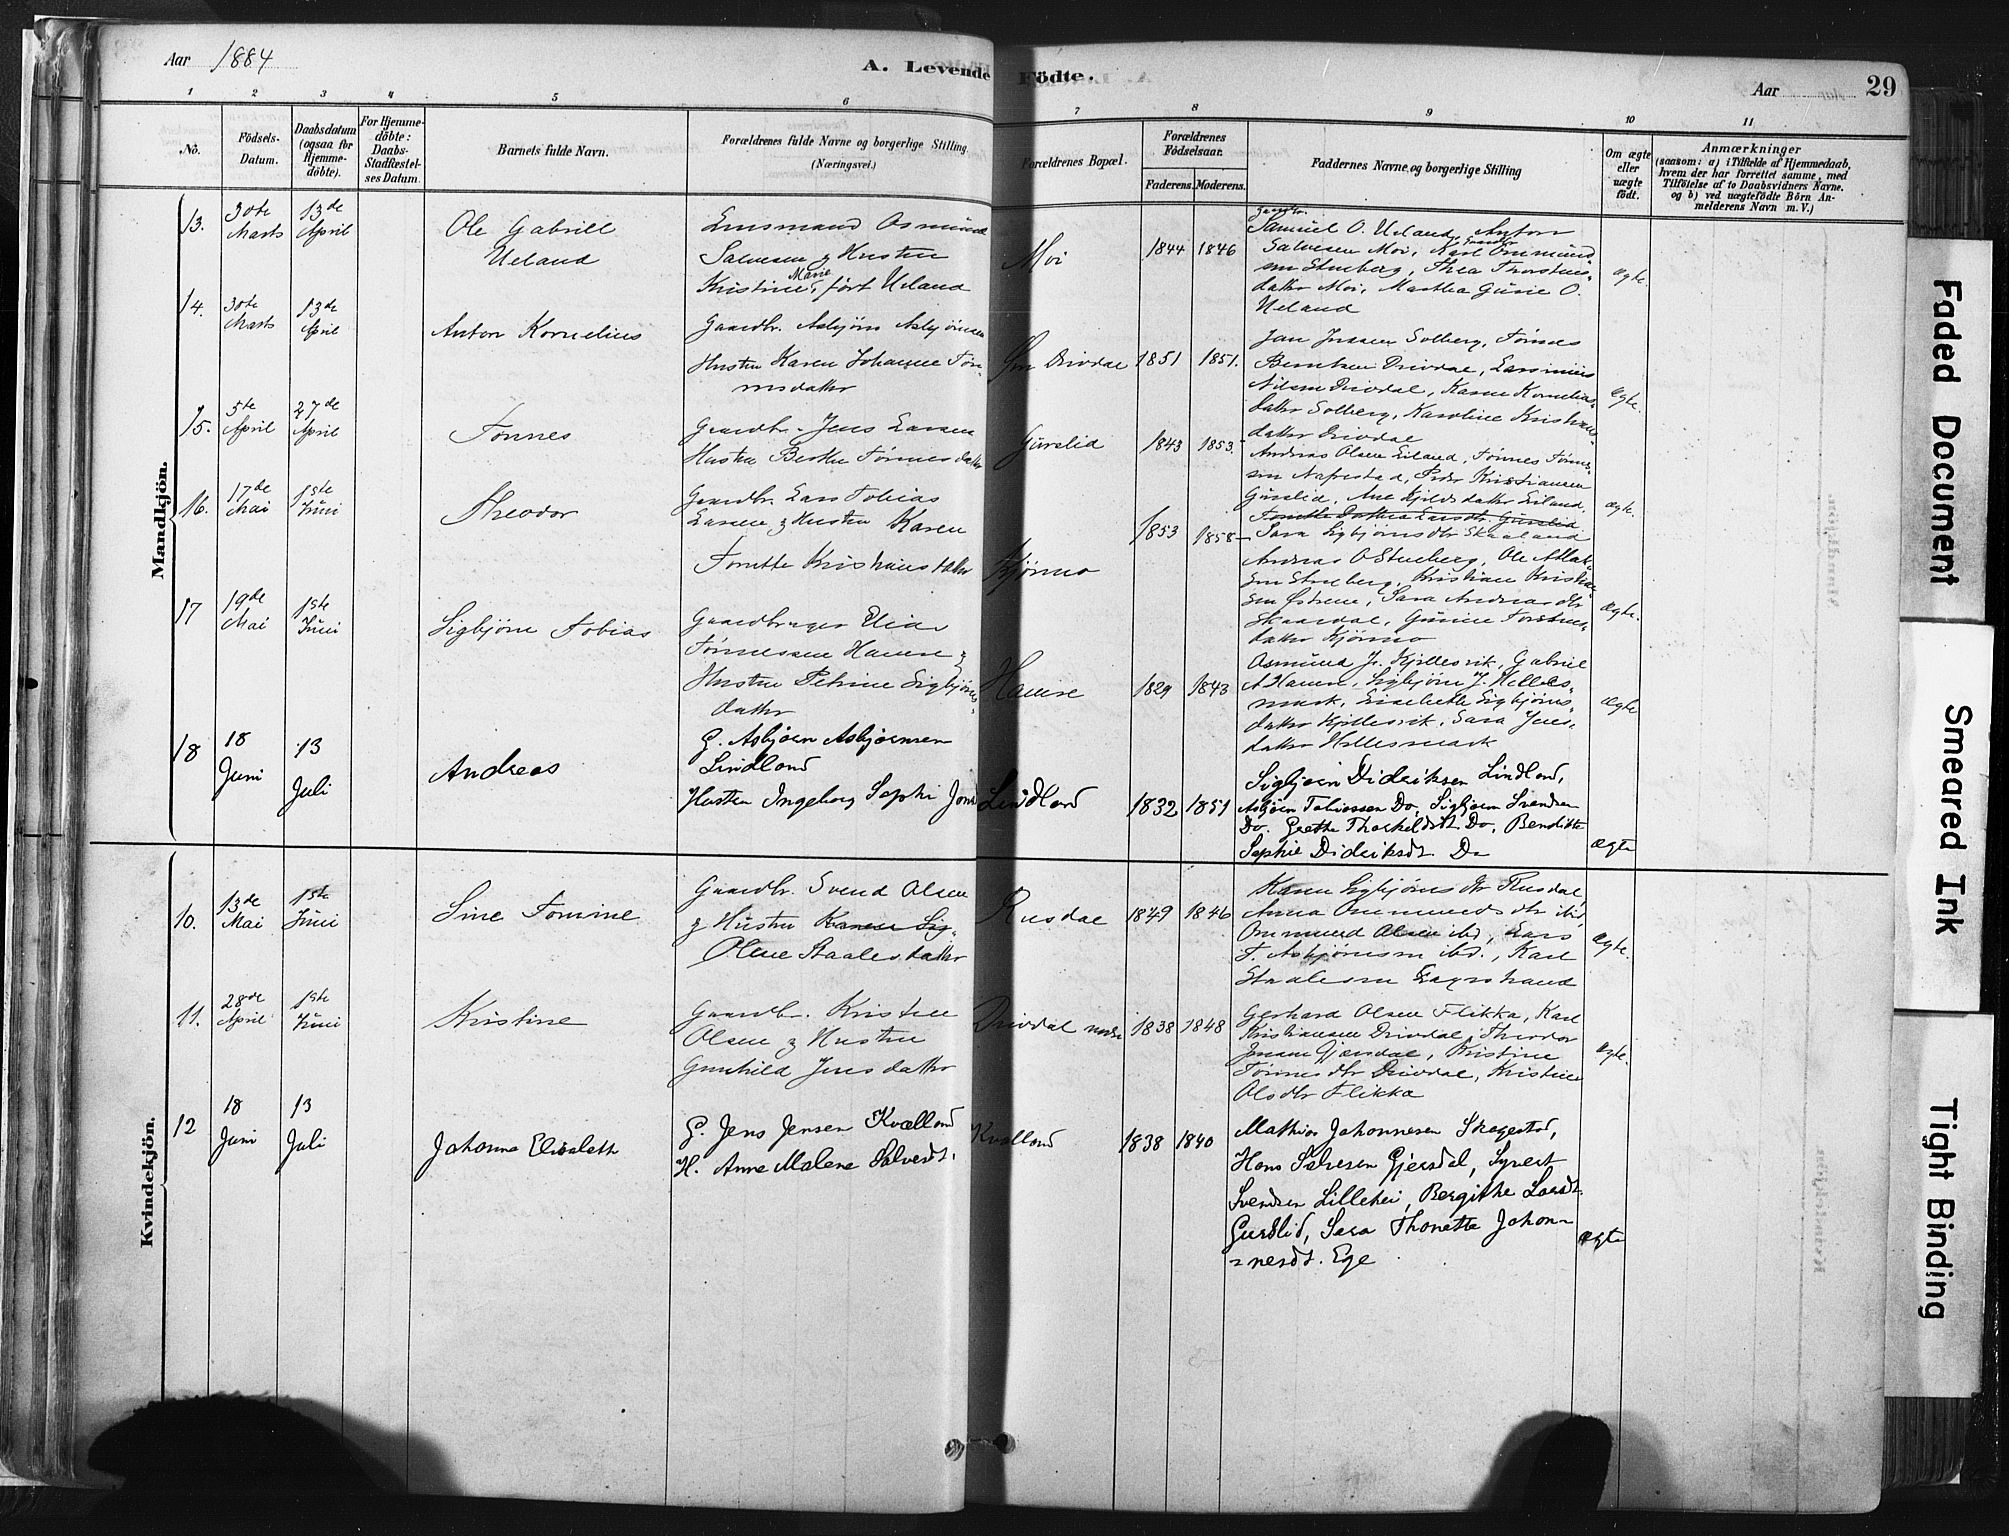 Aar 1884
A. Levende Födte.
Aar
29
1 2 3 4 5 6 7 8 9 10 11
No.
Födsels-Datum.
Daabsdatum (ogsaa for Hjemme-döbte).
For Hjemme-döbte: Daabs-Stadfæstel-ses Datum.
Barnets fulde Navn.
Forældrenes fulde Navne og borgerlige Stilling (Næringsvei.)
Forældrenes Bopæl.
Forældrenes Födselsaar.
Faderens. Moderens.
Faddernes Navne og borgerlige Stilling
Om ægte eller uægte født.
Anmærkninger
(saasom: a) i Tilfælde af Hjemmedaab,
hvem der har forrettet samme, med
Tilföielse af to Daabsvidners Navne.
og b) ved uægtefödte Börn An-
melderens Navn m. V.)
Mandkjön.
13.
30te Marts
13de April
Ole Gabriel
Ueland
Osmund
Salvesen & Hustru
Kristine Marie, født Ueland
Moi
1844 1846
Samuel O. Ueland, Anton
Salvesen Moi, Karl Ommund
sen Stueberg, Thea Thorstens
datter Moi, Martha Gurie O.
Ueland
ægte.
14.
30te Marts
13de April
Anton Kornelius
Gaardbr. Asbjørn Asbjørnsen
Hustru Karen Johanne Tøn-
nesdatter
Drivdal
1851 1851.
Jan Jensen Solberg, Tønnes
Berntsen Drivdal,
Nilsen Drivdal, Karen Kornelius-
datter Solberg, Karoline Kristians
datter Drivdal
ægte.
15.
5te April
27de April
Tønnes
Gaardbr. Jens Larsen
Hustru Berthe Tønnesdatter
Gurslid
1843 1853.
Andreas Olsen Eiland, Tønnes Tønnes-
sen Nafrestad, Peder Kristiansen
Gurslid, Ane Kjeldsdatter Eiland,
Tonette Dorthea Larsdtr. Gurslid
Sara Sigbjørnsdtr Skaaland
ægte.
16.
17de Mai
1ste Juni
Theodor
Gaardbr. Lars Tobias
Larsen & Hustru Karen
Tonette Kristiansdatter
Kjørmo
1853 1858
Andreas O Stueberg, Ole Atlak-
sen Stueberg, Kristian Kristian
sen Østrene, Sara Andreasdtr
Skaardal, Gunene Torstens-
datter Kjørmo
Ægte.
17
19de Mai
1ste Juni
Sigbjørn Tobias
Gaardbruger Elias
Tønnessen Hauen &
Hustru Petrine Sigbjørns-
datter
1829 1843
Osmund Js. Kjellesvik, Gabriel
A Hauen, Sigbjørn J. Helles-
mark, Lisebette Sigbjørns-
datter Kjellesvik, Sara Jens-
datter Hellesmark
Ægte
18
18 Juni
13 Juli
Andreas
G. Asbjørn Asbjørnsen
Lindland
Hustru Ingeborg Sophi Jons
Lindland
1832 1851
Sigbjørn Dideriksen Lindland,
Asbjørn Tobiassen Do, Sigbjørn Svendsen
Do. Grethe Thorkildsdt Do, Bendikte
Sophie Dideriksdt. Do
ægte
Kvindekjön.
10.
13de Mai
1ste Juni
Sine Tomine
Gaardbr. Svend Olsen
& Hustru Karen Sig-
Olene Staalesdatter
Rusdal
1849 1846
Karen Sigbjørnsdtr Rusdal,
Anna Ommundsdtr ibd,
Ommund Olsen ibd, Lars
T. Asbjørnsen ibd., Karl
Staalesen Eegestrand
Ægte.
11.
28de April
1ste Juni
Kristine
Gaardbr. Kristen
Olsen & Hustru
Gunhild Jensdatter
Drivdal
1838 1848
Gerhard Olsen Flikka, Karl
Kristiansen Drivdal, Theodor
Jensen Gjersdal, Kristine
Tønnesdtr Drivdal, Kristine
Olsdtr Flikka
Ægte.
12
18 Juni
13 Juli
Johanne Elisabeth
G. Jens Jensen Kvalland
H. Anne Malene Salvesdt.
Kvalland
1838 1840
Mathias Johannesen Skogestad,
Hans Salvesen Gjersdal, Syvert
Svendsen Lillehei, Bergithe Larsdt.
Gurslid, Sara Thonette Johan-
nesdt. Ege
ægte
Faded Document
Smeared Ink
Tight Binding